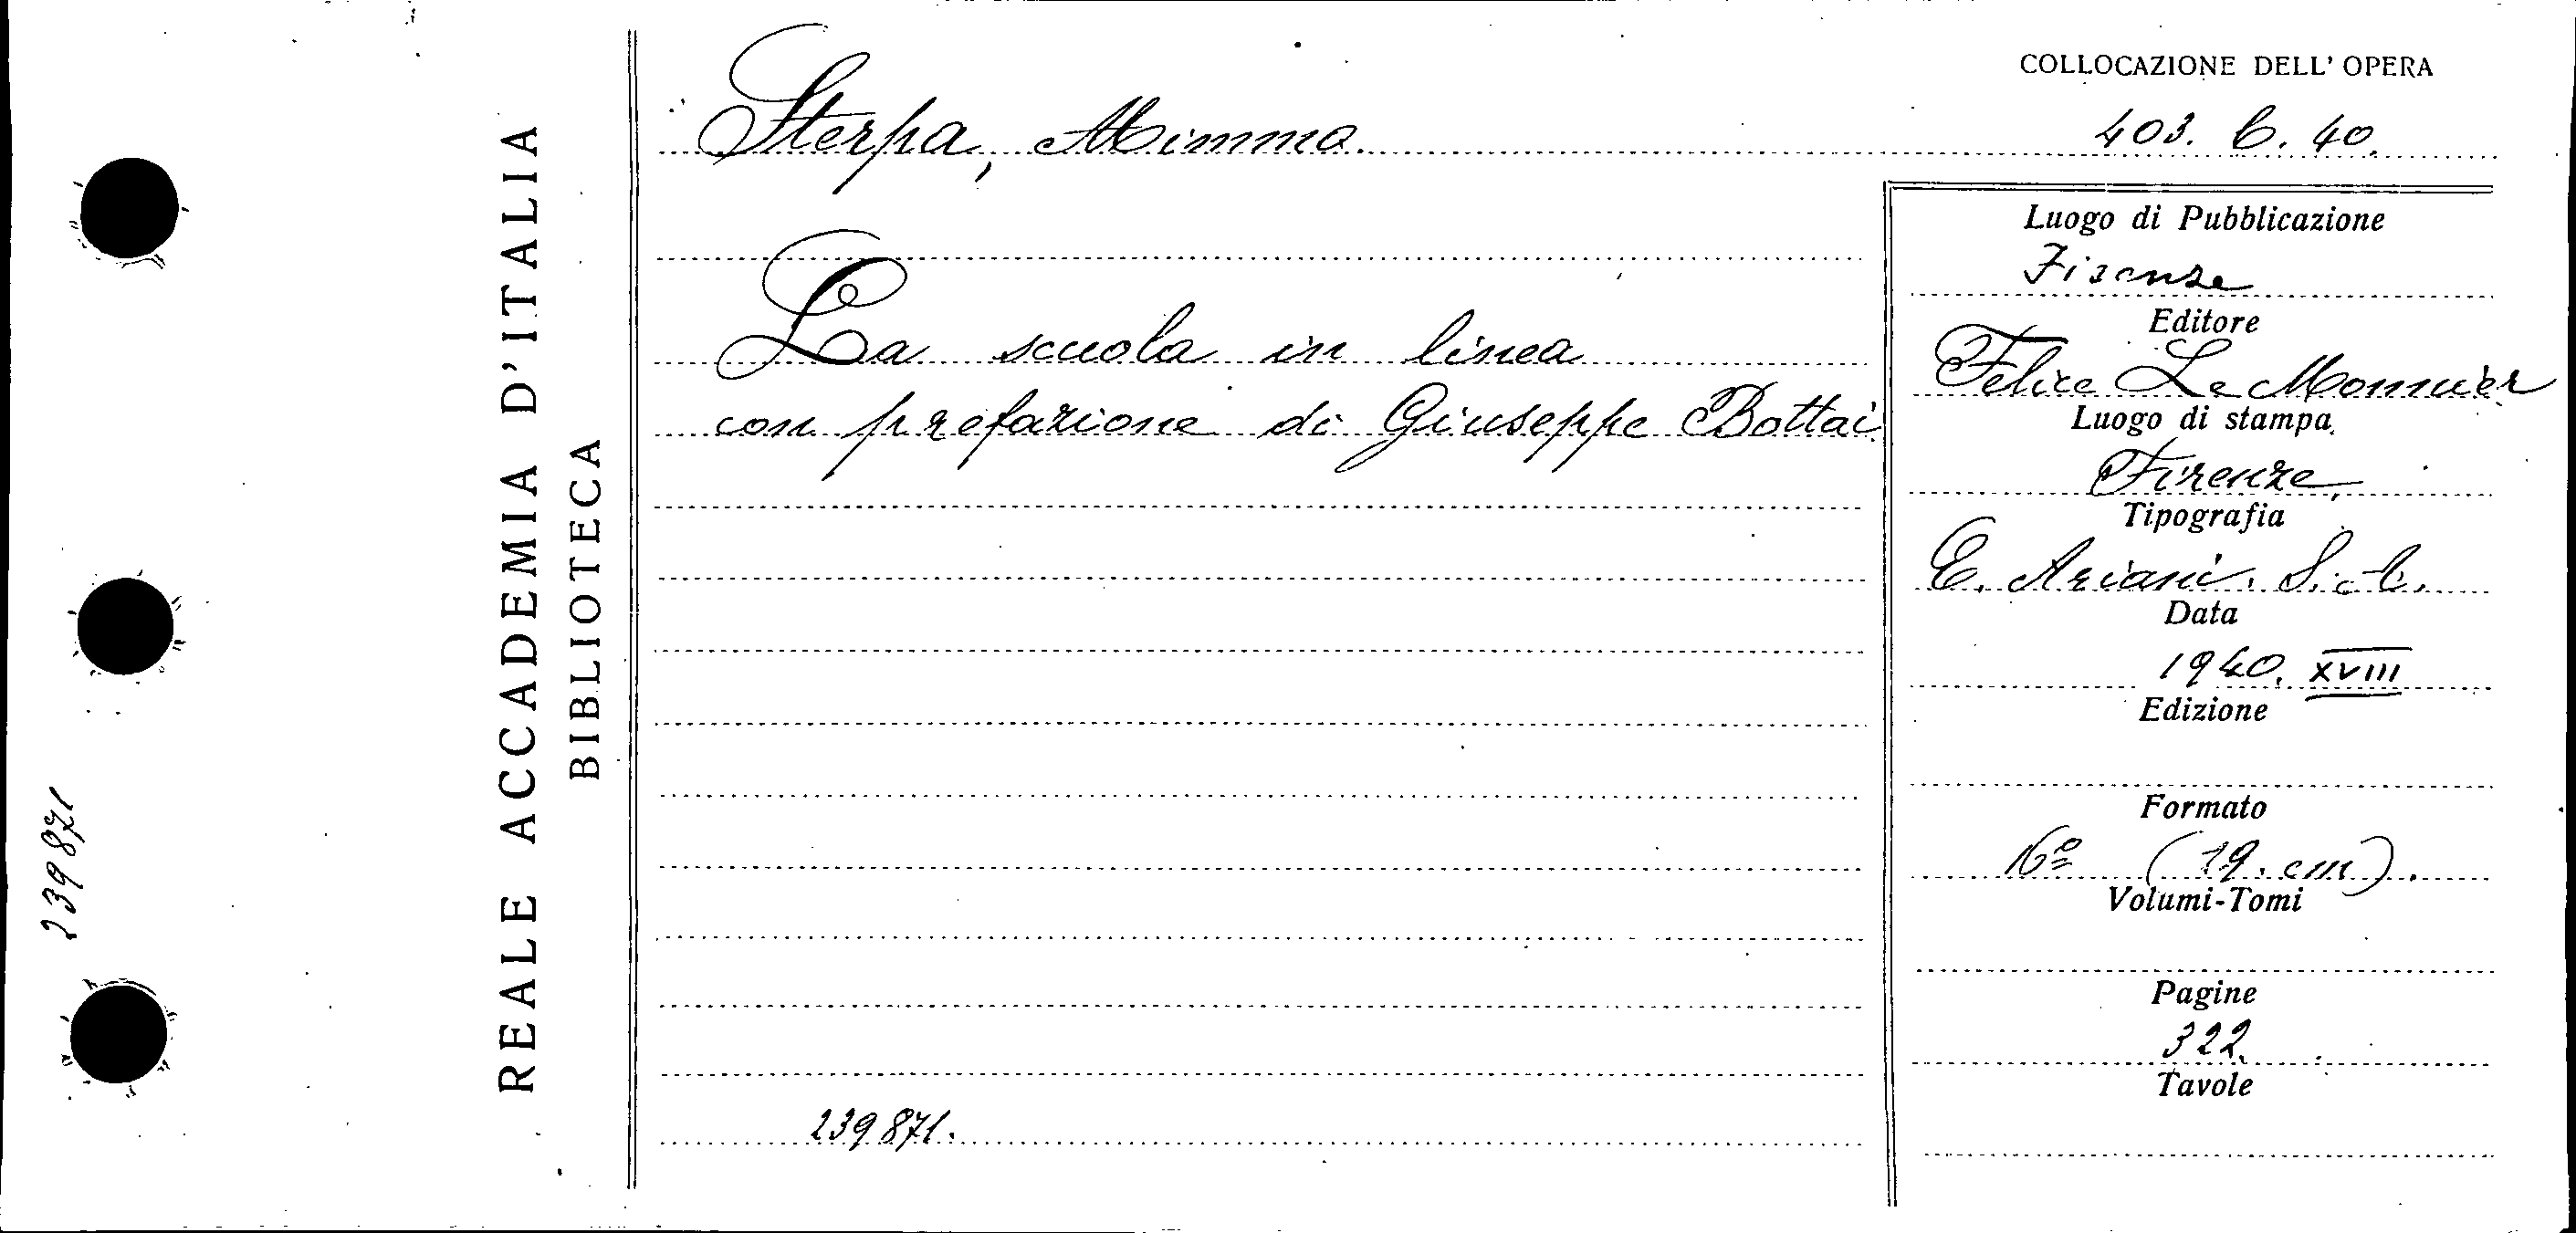 REALE ACCADEMIA D'ITALIA
BIBLIOTECA
239871
Sterpa, Mimma.
La scuola in linea
con prefazione di Giuseppe Bottai
239871.
COLLOCAZIONE DELL' OPERA
403. C. 40.
Luogo di Pubblicazione
Firenze
Editore
Felice Le Monnier
Luogo di stampa
Firenze
Tipografia
E. Ariani.
Data
1940. XVIII
Edizione
Formato
16º (19. cm).
Volumi-Tomi
Pagine
322.
Tavole